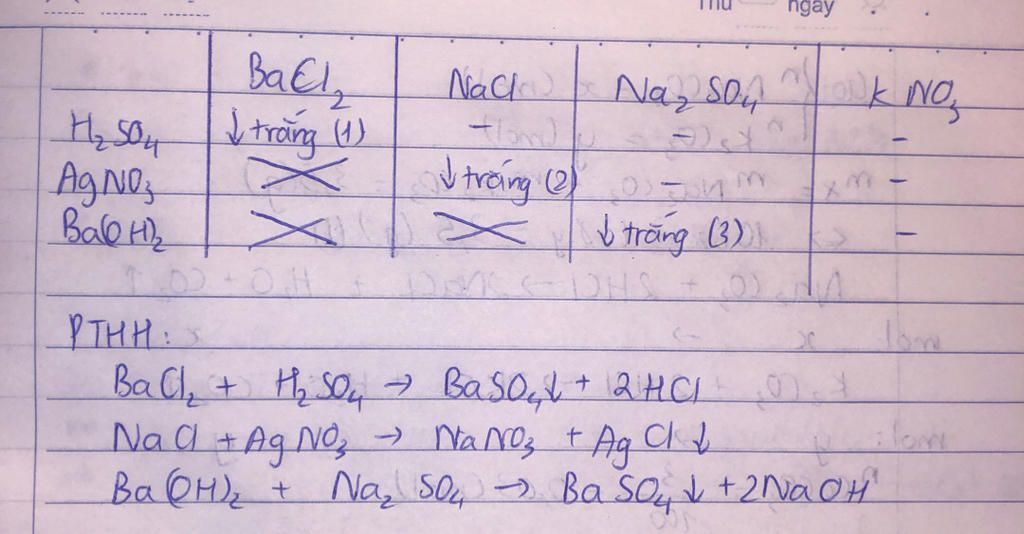 Thứ ngày
BaCl₂ NaCl Na₂SO₄ KNO₃
H₂SO₄ ↓ trắng (1) - - -
AgNO₃ ↓ trắng (2) - -
Ba(OH)₂ ↓ trắng (3) -
PTHH:
BaCl₂ + H₂SO₄ → BaSO₄↓ + 2HCl
NaCl + AgNO₃ → NaNO₃ + AgCl↓
Ba(OH)₂ + Na₂SO₄ → BaSO₄↓ + 2NaOH